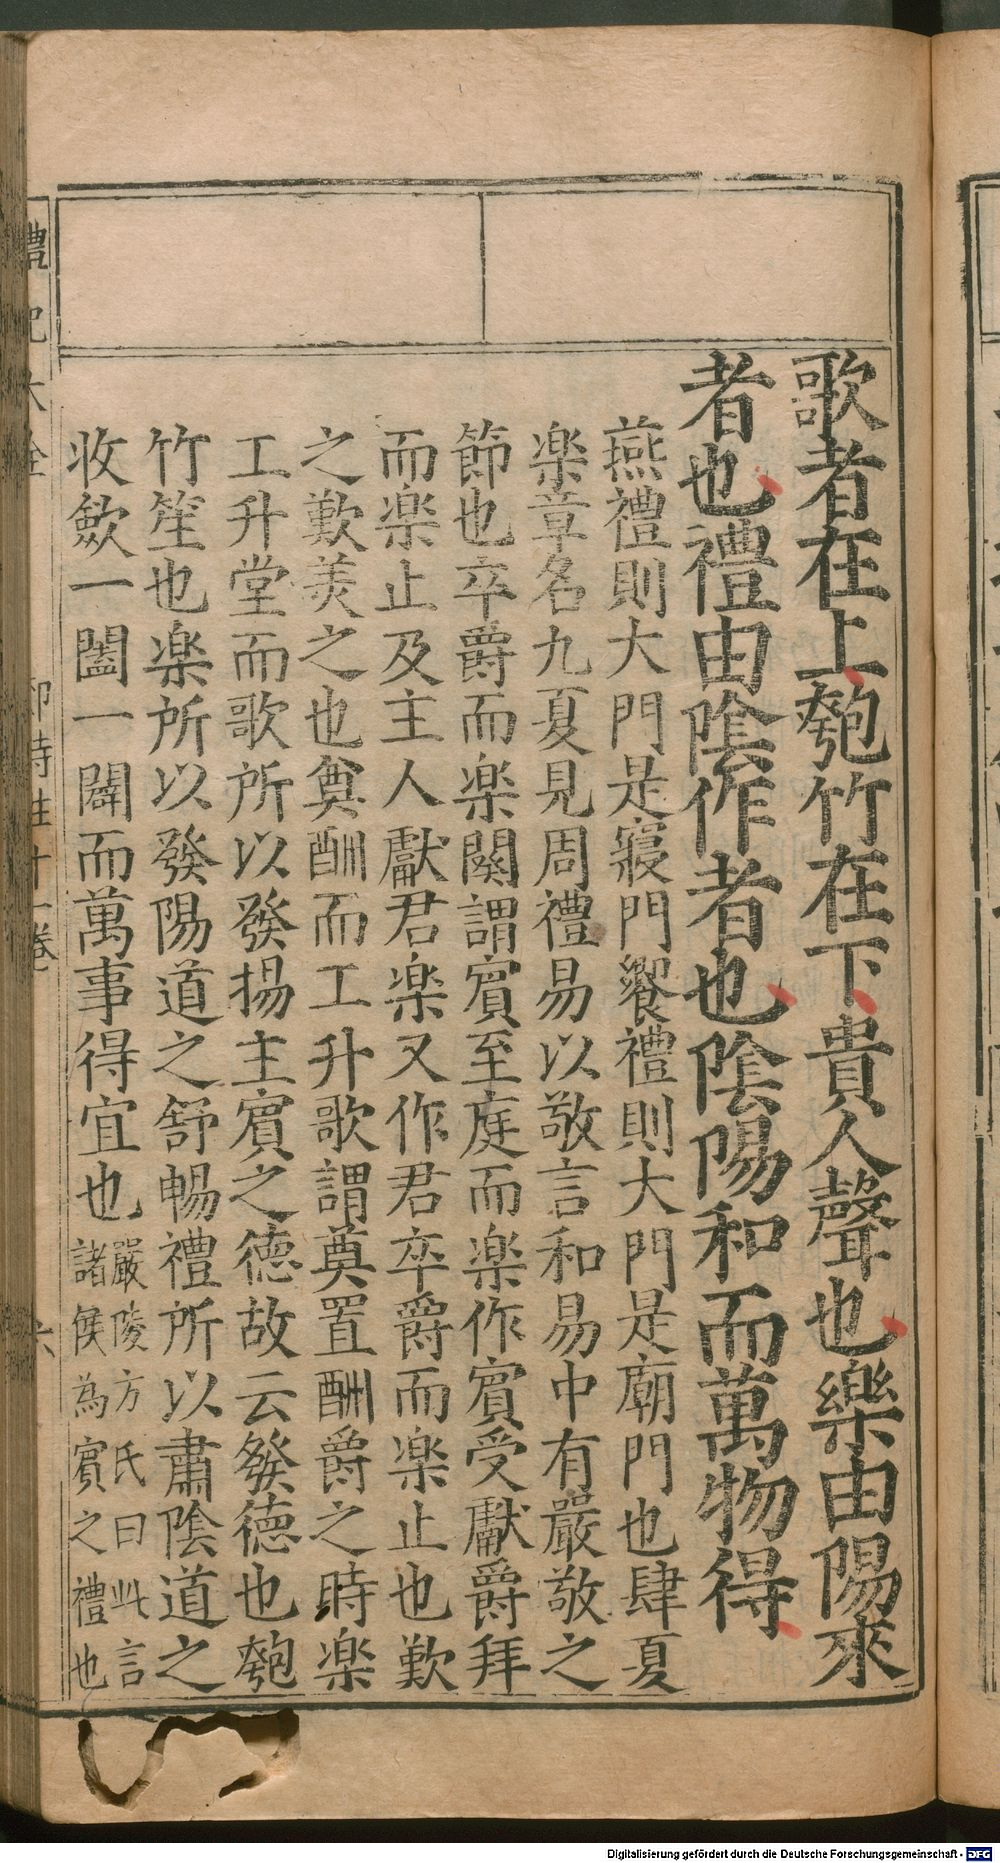 歌者在上匏竹在下貴人聲也樂由陽來
者也禮由陰作者也陰陽和而萬物得
燕禮則大門是寢門饗禮則大門是廟門也肆夏
楽章名九夏見周禮易以敬言和易中有嚴敬之
節也卒爵而楽闋謂賓至庭而楽作賓受獻爵拜
而楽止及主人獻君楽又作君卒爵而楽止也歎
之歎美之也奠酬而工升歌謂奠置酬爵之時楽
工升堂而歌所以發揚主賓之德故云發德也匏
竹笙也楽所以發陽道之舒暢禮所以肅陰道之
收斂一闔一闢而萬事得宜也嚴陵方氏曰此言
諸侯為賓之禮也
禮記大全
郊特牲十一卷
六
Digitalisierung gefördert durch die Deutsche Forschungsgemeinschaft - DFG